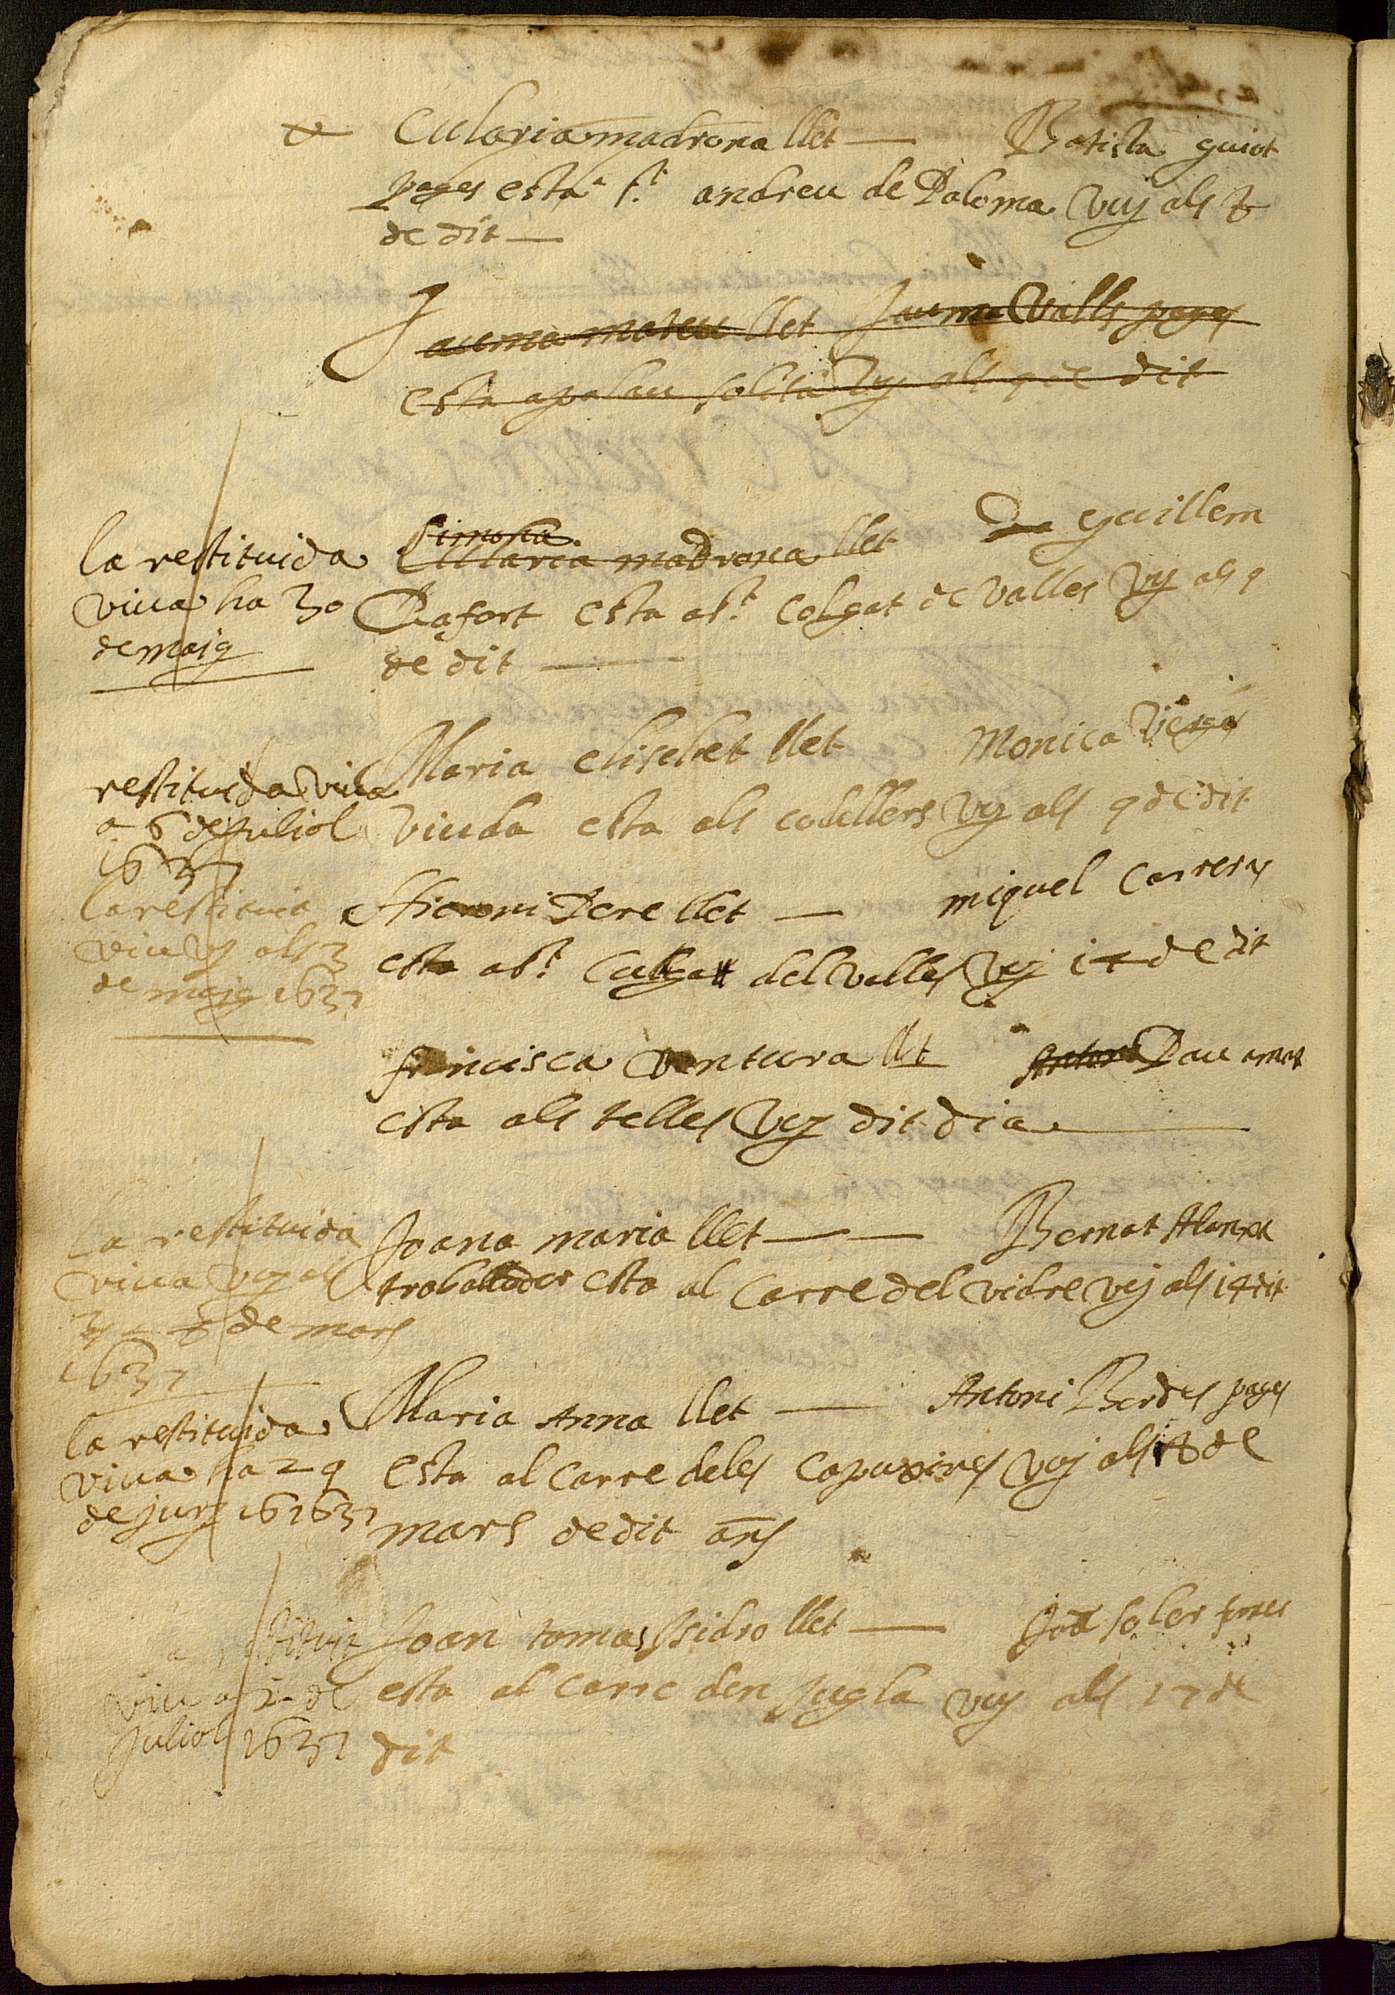 Eularia madrona llet — Batista guiot
pages esta a st. andreu de Paloma vuy als 8
de dit —
Jauma mateu llet Jauma Valls pages
esta a palau solita vuy als 9 de dit
la restituida
viva ha 30
de maig
Simona
Eularia madrona llet guillem
Rafort esta a st. Colgat de valles vuy als 9
de dit —
restituida viva
a 6 de Juliol
1637
Maria elisebet llet Monica Verga
viuda esta als cotellers vuy als 9 de dit
la restituia
viu vuy als 3
de maig 1637
Hieroni Pere llet — miquel Carreras
esta a st. Culgat del valles vuy 14 de dit
francisca ventura llet Antoni Pau amat
esta als telles vuy dit dia
La restituida
viva vuy als
8 de mars
1637
Joana maria llet — Bernat
traballador esta al Carre del vidre vuy als 14 dit
la restituida
viva ha 29
de juny 161637
Maria Anna llet — Antoni Bordes pages
esta al carre de les capuxines vuy als 18 de
mars de dit any
viu a 2 de
Juliol 1637
Joan tomas Isidro llet — Joan soler
esta al carre den Jugla vuy als 17 de
dit